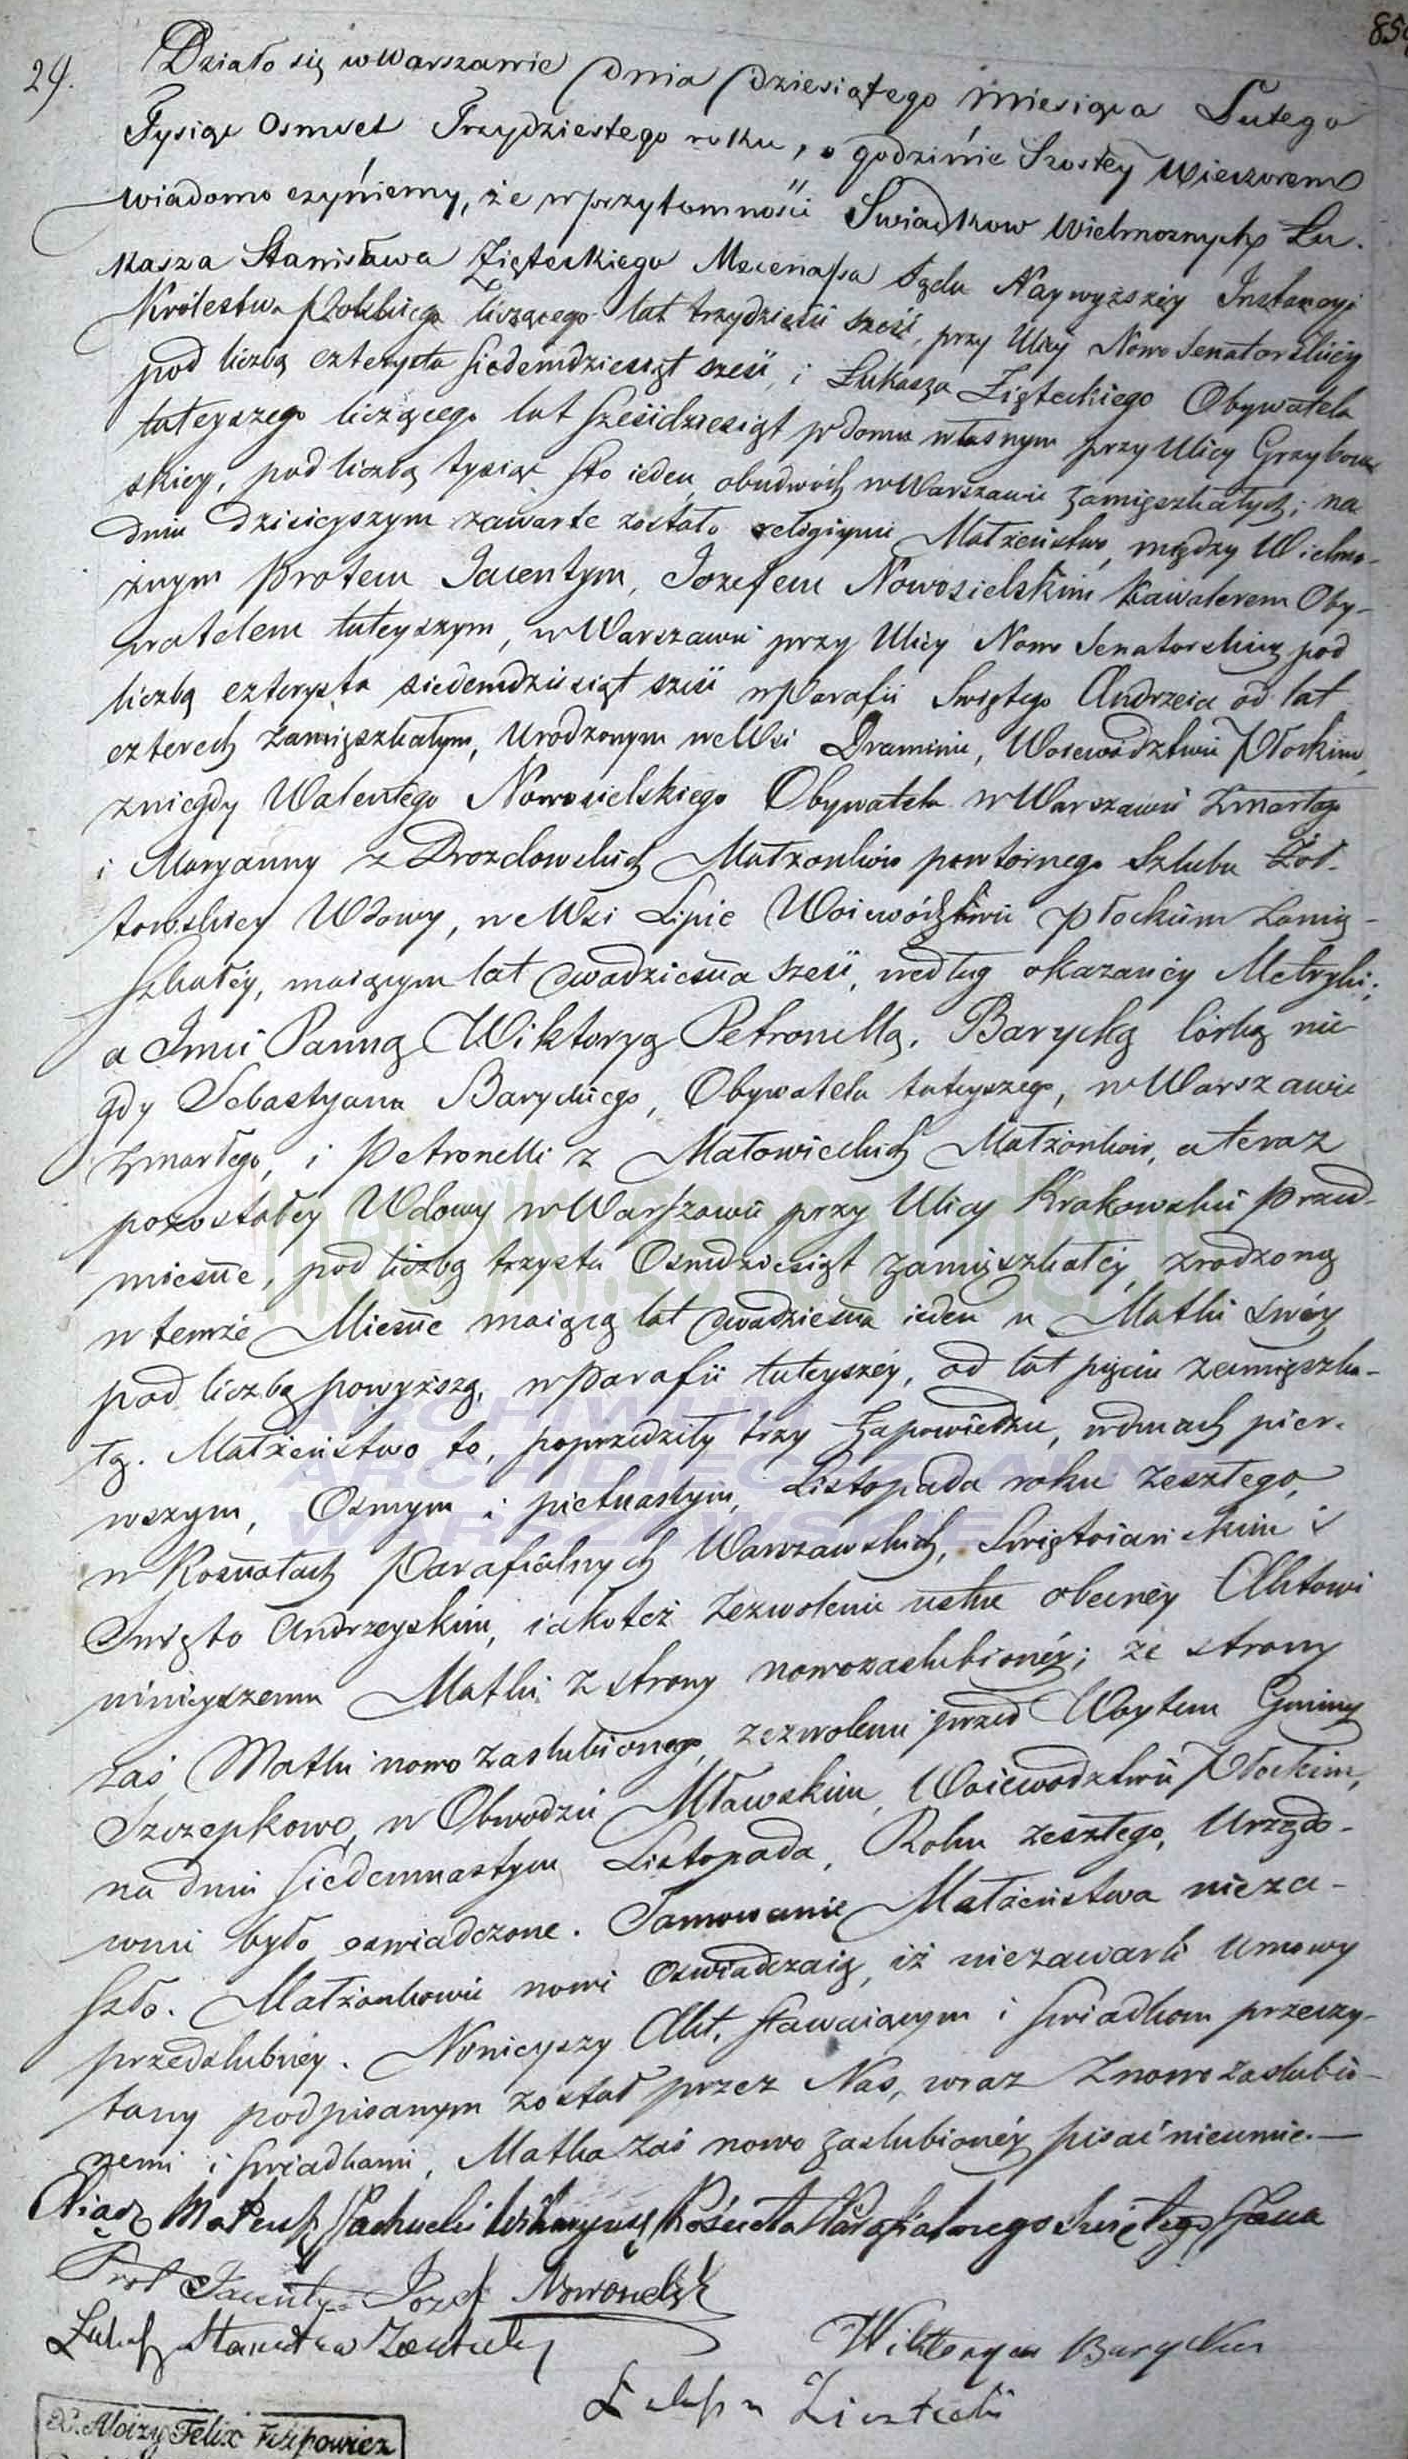 859
29. Działo się w Warszawie dnia dziesiątego Miesiąca Lutego
Tysiąc Osmset Trzydziestego roku, o godzinie Szostey Wieczorem
wiadomo czyniemy, że w przytomności Swiadkow Wielmoznych Łu-
kasza Stanisława Ziąteckiego Mecenassa Sądu Naywyższéy Instancyi
Królestwa Polskiego liczącego lat trzydzieści sześć, przy Ulicy Nowo Senatorskiéy
pod liczbą czterysta siedemdziesiąt sześć, i Łukasza Ziąteckiego Obywatela
tuteyszego liczącego lat sześćdziesiąt w domu własnym przy Ulicy Grzybow-
skiey, pod liczbą tysiąc sto ieden, obudwóch w Warszawie zamięszkałych; na
dniu dzisieyszym zawarte zostało religiyne Małżeństwo, między Wielmo-
żnym Protem Jacentym, Jozefem Nowosielskim Kawalerem Oby-
watelem tuteyszym, w Warszawie przy Ulicy Nowo Senatorskiey pod
liczbą czterysta siedemdziesiąt sześć w Parafii Swiętego Andrzeia od lat
czterech zamięszkałym, Urodzonym we Wsi Draminie, Woiewództwie Płockim,
z niegdy Walentego Nowosielskiego Obywatela w Warszawie zmarłego
i Maryanny z Drozdowskich Małżonków powtórnego Szlubu Żół-
towskiey Wdowy, we Wsi Lipie Woiewództwie Płockiem zamię-
szkałéy, maiącym lat dwadzieścia sześć, według okazanéy Metryki;
a Imć Panną Wiktoryą Petronellą, Barycką córką nie-
gdy Sebastyana Baryckiego, Obywatela tuteyszego, w Warszawie
zmarłego, i Petronelli z Małowieckich Małżonków, a teraz
pozostałéy Wdowy w Warszawie przy Ulicy Krakowskie Przed-
mieście, pod liczbą trzysta Osmdziesiąt zamięszkałéy, zrodzoną
w temże Mieście maiącą lat dwadzieścia ieden u Matki swéy
pod liczbą powyższą, w Parafii tuteyszéy, od lat pięciu zamięszka-
łą. Małżeństwo to, poprzedziły trzy Zapowiedzie, w dniach pier-
wszym, Osmym i piętnastym, Listopada roku zeszłego,
w Kościołach Parafialnych Warszawskich, Swiętoiańskim i
Swięto Andrzeyskim, iakoteż zezwolenie ustne obecnéy Aktowi
ninieyszemu Matki z strony nowozaslubionéy; ze strony
zaś Matki nowo zaslubionego, zezwolenie przed Woytem Gminy
Szczepkowo, w Obwodzie Mławskim, Woiewodztwie Płockim,
na dniu siedemnastym Listopada, Roku zeszłego, Urzędo-
wnie było oswiadczone. Tamowanie Małżeństwa nieza-
szło. Małżonkowie nowi Oswiadczaią, iż niezawarli Umowy
przedslubnéy. Ninieyszy Akt, stawaiącym i swiadkom przeczy-
tany podpisanym został przez Nas, wraz z nowo zaslubio-
nemi i swiadkami, Matka zaś nowo zaslubionéy pisać nieumie. —
Xiądz Mateusz Wikaryusz Kościoła Parafialnego Swiętego Jana
Prot Jacenty Jozef Nowosielski
Łukasz Stanisław Ziątecki
Wiktorya Barycka
Łukasz Ziątecki
X. Aloizy Felix Filipowicz
metryki.genealodzy.pl
ARCHIWUM
ARCHIDIECEZJALNE
WARSZAWSKIE